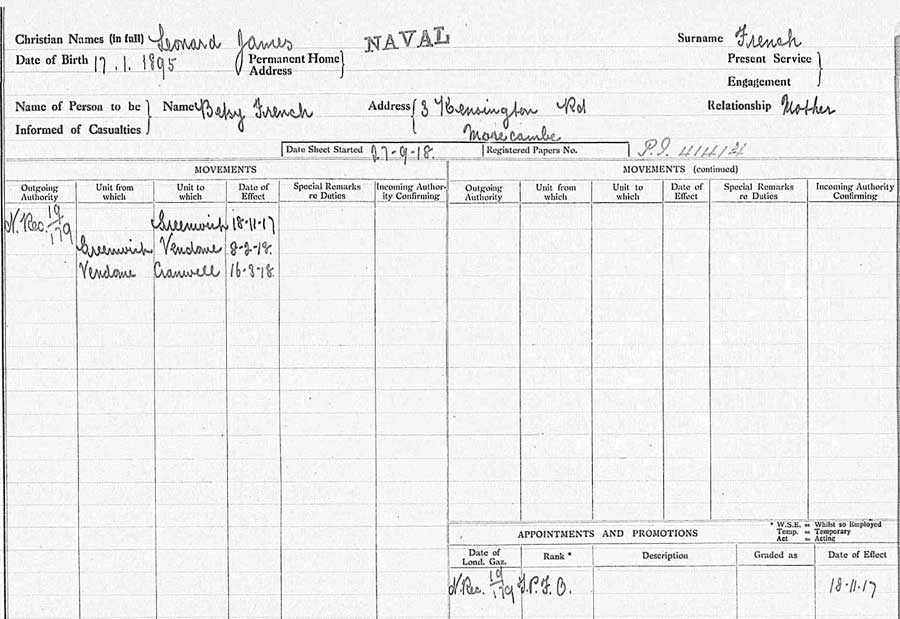 Christian Names (in full) Leonard James NAVAL Surname French
Date of Birth 17.1.1895 Permanent Home Address } Present Service
Engagement }
Name of Person to be Informed of Casualties } Name Betsy French Address { 3 Kensington Rd Relationship Mother
Morecambe
Date Sheet Started 27-9-18. Registered Papers No. P.I. 41414
MOVEMENTS MOVEMENTS (continued)
Outgoing Authority Unit from which Unit to which Date of Effect Special Remarks re Duties Incoming Author-ity Confirming Outgoing Authority Unit from which Unit to which Date of Effect Special Remarks re Duties Incoming Authority Confirming
N. Rec. 19/179 Greenwich 18-11-17
Greenwich Vendome 8-2-18.
Vendome Cranwell 16-3-18.
APPOINTMENTS AND PROMOTIONS
* W.S.E. = Whilst so Employed
Temp. = Temporary
Act = Acting
Date of Lond. Gaz. Rank * Description Graded as Date of Effect
N. Rec. 19/179 T.P.F.O. 18-11-17